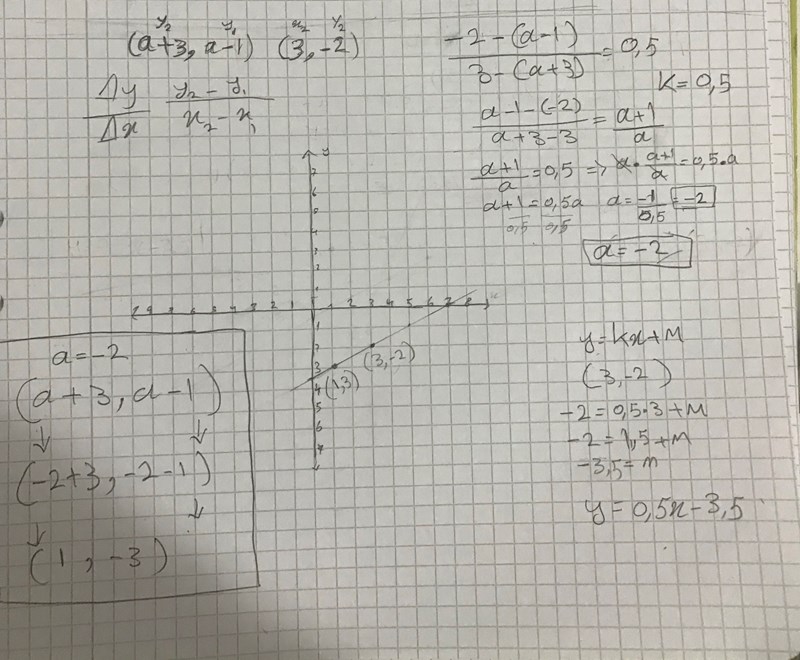 y₂ y₁ x₂ y₂
(a+3, a-1) (3, -2)
Δy/Δx (y₂ - y₁)/(x₂ - x₁)
(-2-(a-1))/(3-(a+3)) = 0,5
K = 0,5
(a-1-(-2))/(a+3-3) = (a+1)/a
(a+1)/a = 0,5 => a · (a+1)/a = 0,5 · a
a+1 = 0,5a a = -1/0,5 = -2
0,5 0,5
a = -2
y
1 2 3 4 5 6 7 8
(3, -2)
(1,3)
a = -2
(a+3, a-1)
↓ ↓
(-2+3, -2-1)
↓ ↓
(1, -3)
y = kx+M
(3, -2)
-2 = 0,5·3+M
-2 = 1,5+M
-3,5 = m
y = 0,5x - 3,5